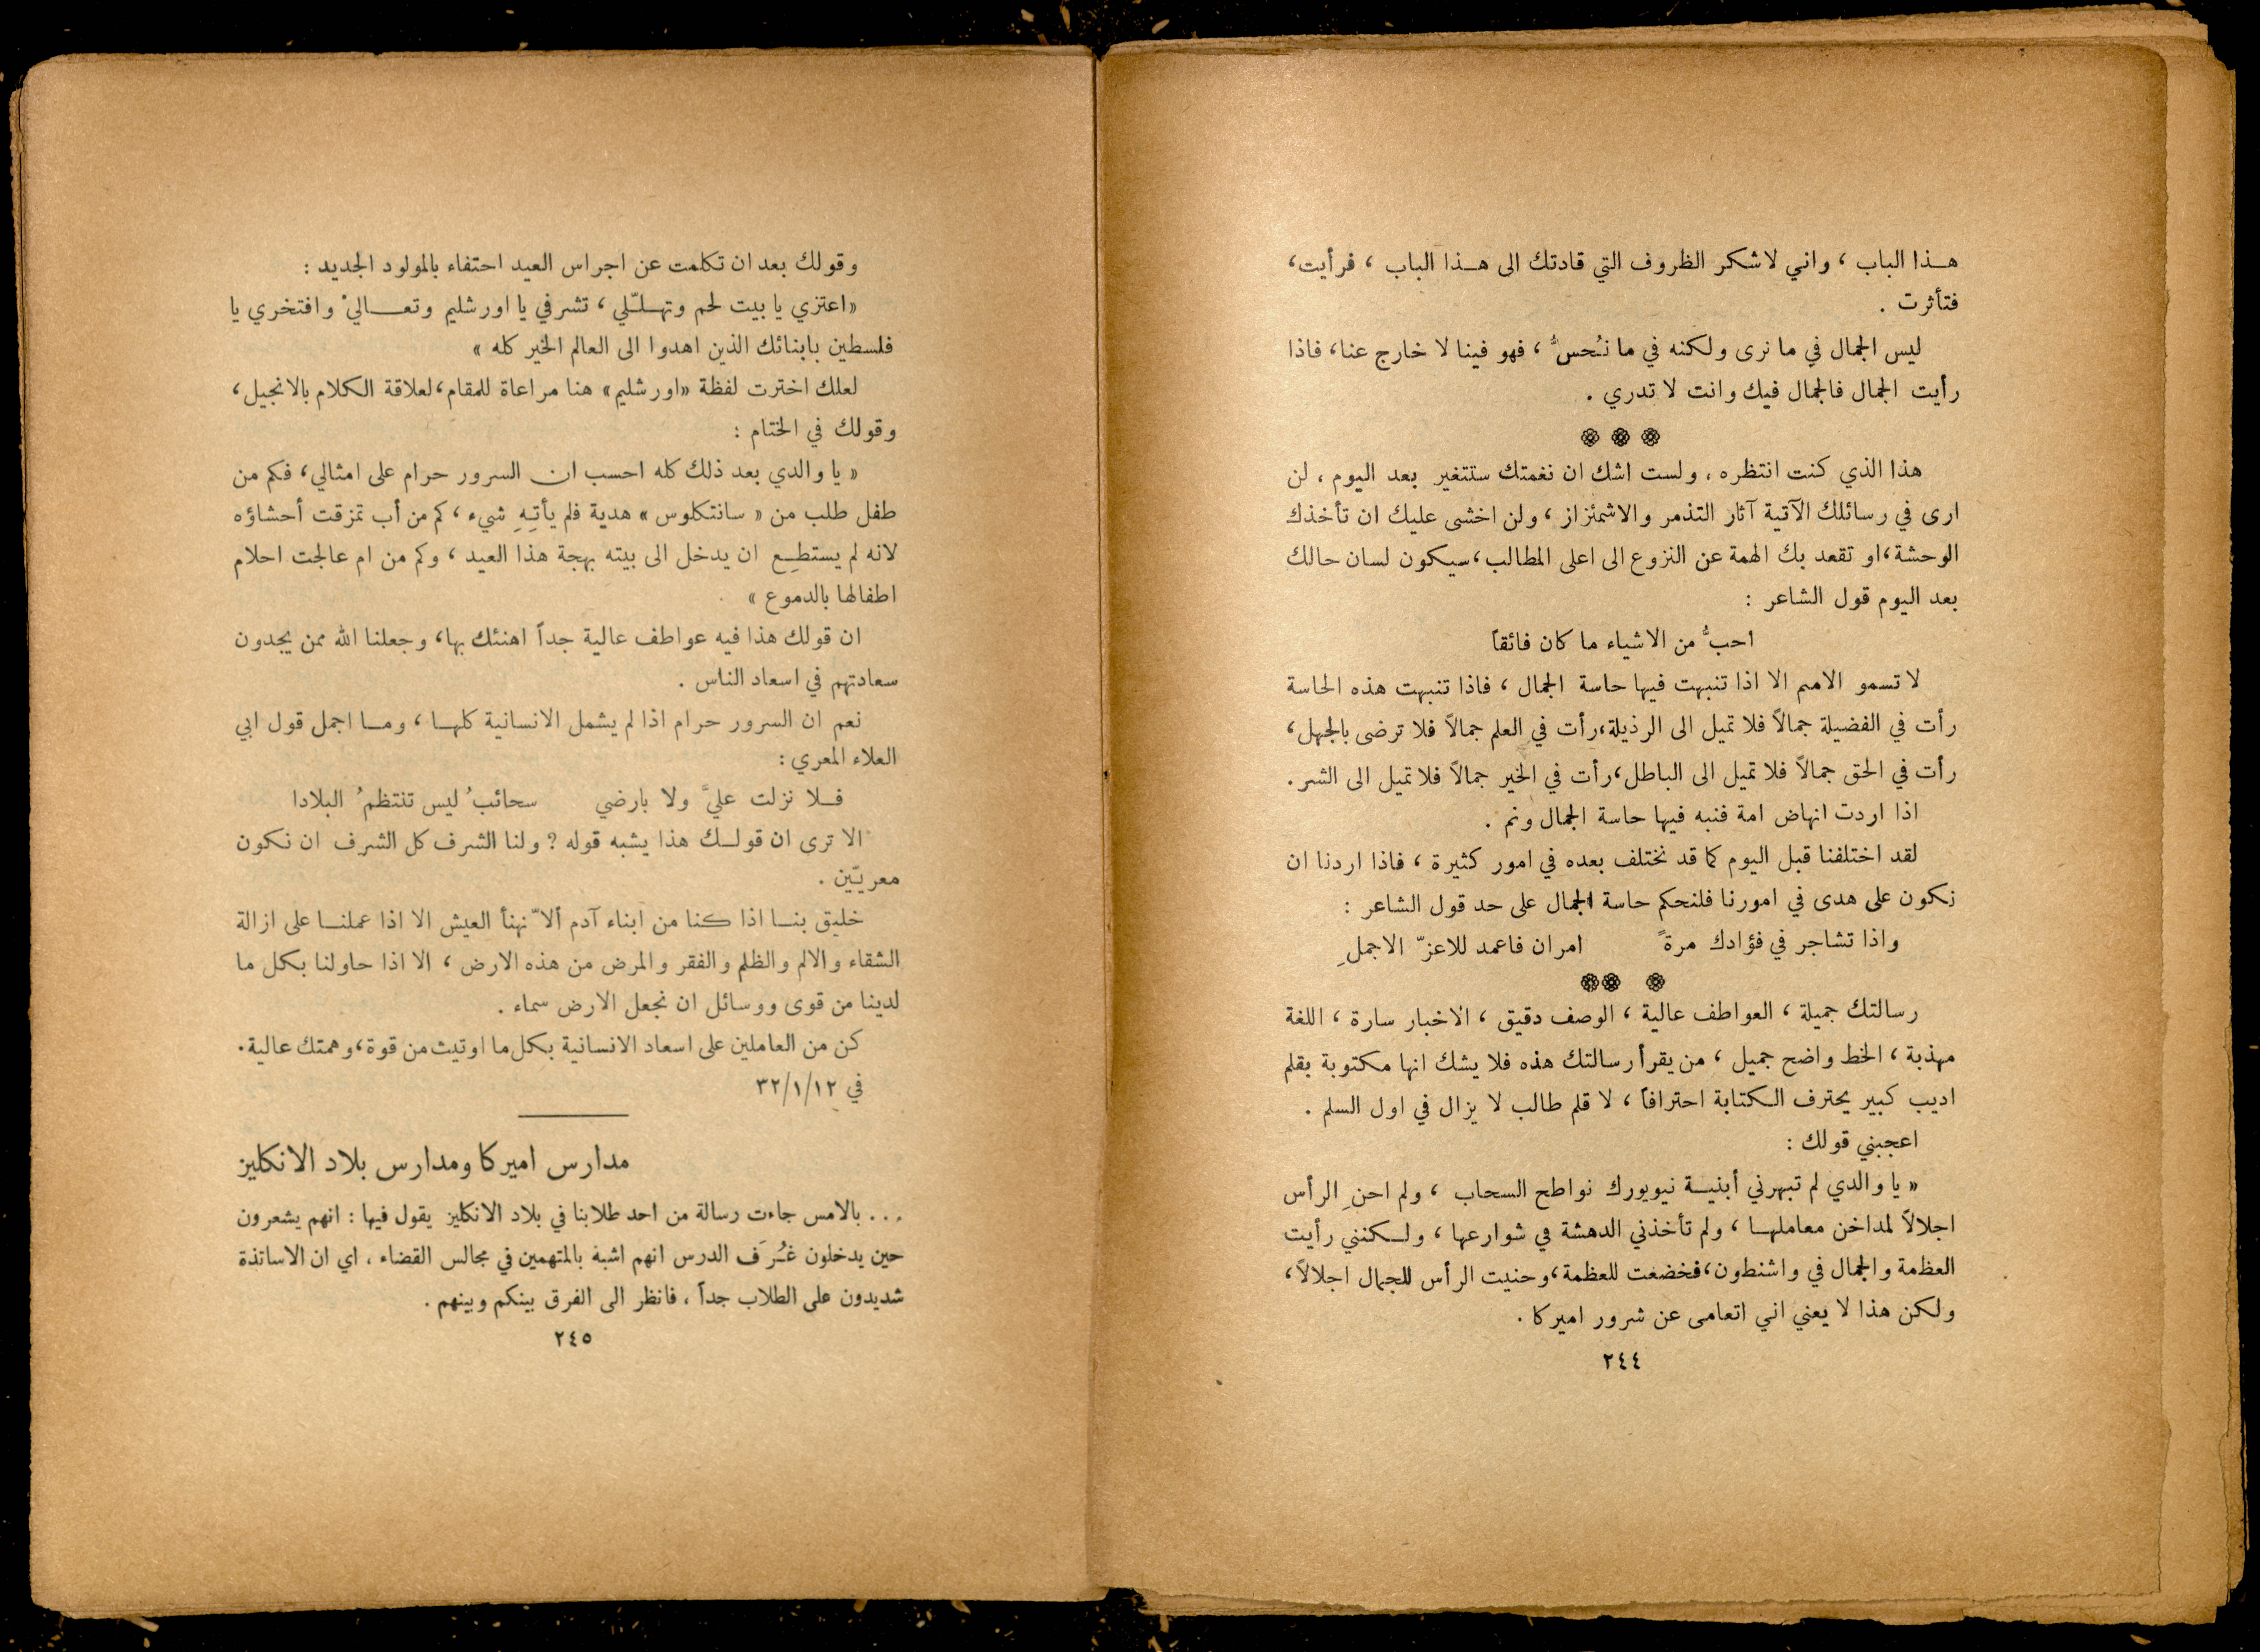 هـذا الباب ، واني لاشكر الظروف التي قادتك الى هـذا الباب ، فرأيت،
فتأثرت .
ليس الجمال في ما نرى ولكنه في ما نُحسُّ ، فهو فينا لا خارج عنا، فاذا
رأيت الجمال فالجمال فيك وانت لا تدري .
هذا الذي كنت انتظره ، ولست اشك ان نغمتك ستتغير بعد اليوم ، لن
ارى في رسائلك الآتية آثار التذمر والاشمئزاز ، ولن اخشى عليك ان تأخذك
الوحشة،او تقعد بك الهمة عن النزوع الى اعلى المطالب،سيكون لسان حالك
بعد اليوم قول الشاعر :
احبُّ من الاشياء ما كان فائقاً
لا تسمو الامم الا اذا تنبهت فيها حاسة الجمال ، فاذا تنبهت هذه الحاسة
رأت في الفضيلة جمالاً فلا تميل الى الرذيلة،رأت في العلم جمالاً فلا ترضى بالجهل،
رأت في الحق جمالاً فلا تميل الى الباطل،رأت في الخير جمالاً فلا تميل الى الشر .
اذا اردت انهاض امة فنبه فيها حاسة الجمال ونم .
لقد اختلفنا قبل اليوم كما قد نختلف بعده في امور كثيرة ، فاذا اردنا ان
نكون على هدى في امورنا فلنحكم حاسة الجمال على حد قول الشاعر :
واذا تشاجر في فؤادك مرةً امران فاعمد للاعزّ الاجملِ
رسالتك جميلة ، العواطف عالية ، الوصف دقيق ، الاخبار سارة ، اللغة
مهذبة ، الخط واضح جميل ، من يقرأ رسالتك هذه فلا يشك انها مكتوبة بقلم
اديب كبير يحترف الكتابة احترافاً ، لا قلم طالب لا يزال في اول السلم .
اعجبني قولك :
« يا والدي لم تبهرني أبنيـة نيويورك نواطح السحاب ، ولم احنِ الرأس
اجلالاً لمداخن معاملهـا ، ولم تأخذني الدهشة في شوارعها ، ولـكنني رأيت
العظمة والجمال في واشنطون،فخضعت للعظمة،وحنيت الرأس للجمال اجلالاً،
ولكن هذا لا يعني اني اتعامى عن شرور اميركا .
٢٤٤
وقولك بعد ان تكلمت عن اجراس العيد احتفاء بالمولود الجديد :
«اعتزي يا بيت لحم وتهـلّلي ، تشرفي يا اورشليم وتعـاليْ وافتخري يا
فلسطين بابنائك الذين اهدوا الى العالم الخير كله »
لعلك اخترت لفظة «اورشليم» هنا مراعاة للمقام،لعلاقة الكلام بالانجيل،
وقولك في الختام :
« يا والدي بعد ذلك كله احسب ان السرور حرام على امثالي، فكم من
طفل طلب من « سانتكلوس » هدية فلم يأتِهِ شيء ، كم من أب تمزقت أحشاؤه
لانه لم يستطِع ان يدخل الى بيته بهجة هذا العيد ، وكم من ام عالجت احلام
اطفالها بالدموع »
ان قولك هذا فيه عواطف عالية جداً اهنئك بها، وجعلنا الله ممن يجدون
سعادتهم في اسعاد الناس .
نعم ان السرور حرام اذا لم يشمل الانسانية كلهـا ، ومـا اجمل قول ابي
العلاء المعري :
فـلا نزلت عليَّ ولا بارضي سحائبُ ليس تنتظمُ البلادا
الا ترى ان قولـك هذا يشبه قوله ? ولنا الشرف كل الشرف ان نكون
معريّين .
خليق بنـا اذا كنا من ابناء آدم ألاّ نهنأ العيش الا اذا عملنـا على ازالة
الشقاء والالم والظلم والفقر والمرض من هذه الارض ، الا اذا حاولنا بكل ما
لدينا من قوى ووسائل ان نجعل الارض سماء .
كن من العاملين على اسعاد الانسانية بكل ما اوتيت من قوة،وهمتك عالية.
في ٣٢/١/١٢
مدارس اميركا ومدارس بلاد الانكليز
... بالامس جاءت رسالة من احد طلابنا في بلاد الانكليز يقول فيها : انهم يشعرون
حين يدخلون غُرَف الدرس انهم اشبه بالمتهمين في مجالس القضاء ، اي ان الاساتذة
شديدون على الطلاب جداً ، فانظر الى الفرق بينكم وبينهم .
٢٤٥